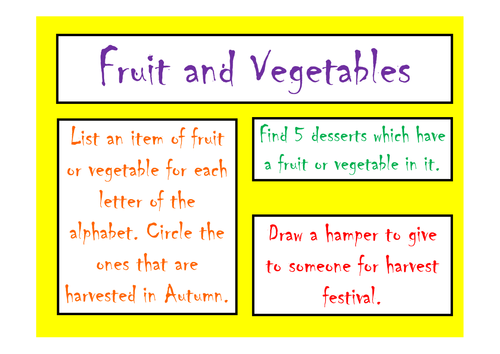 Fruit and Vegetables
List an item of fruit
or vegetable for each
letter of the
alphabet. Circle the
ones that are
harvested in Autumn.
Find 5 desserts which have
a fruit or vegetable in it.
Draw a hamper to give
to someone for harvest
festival.